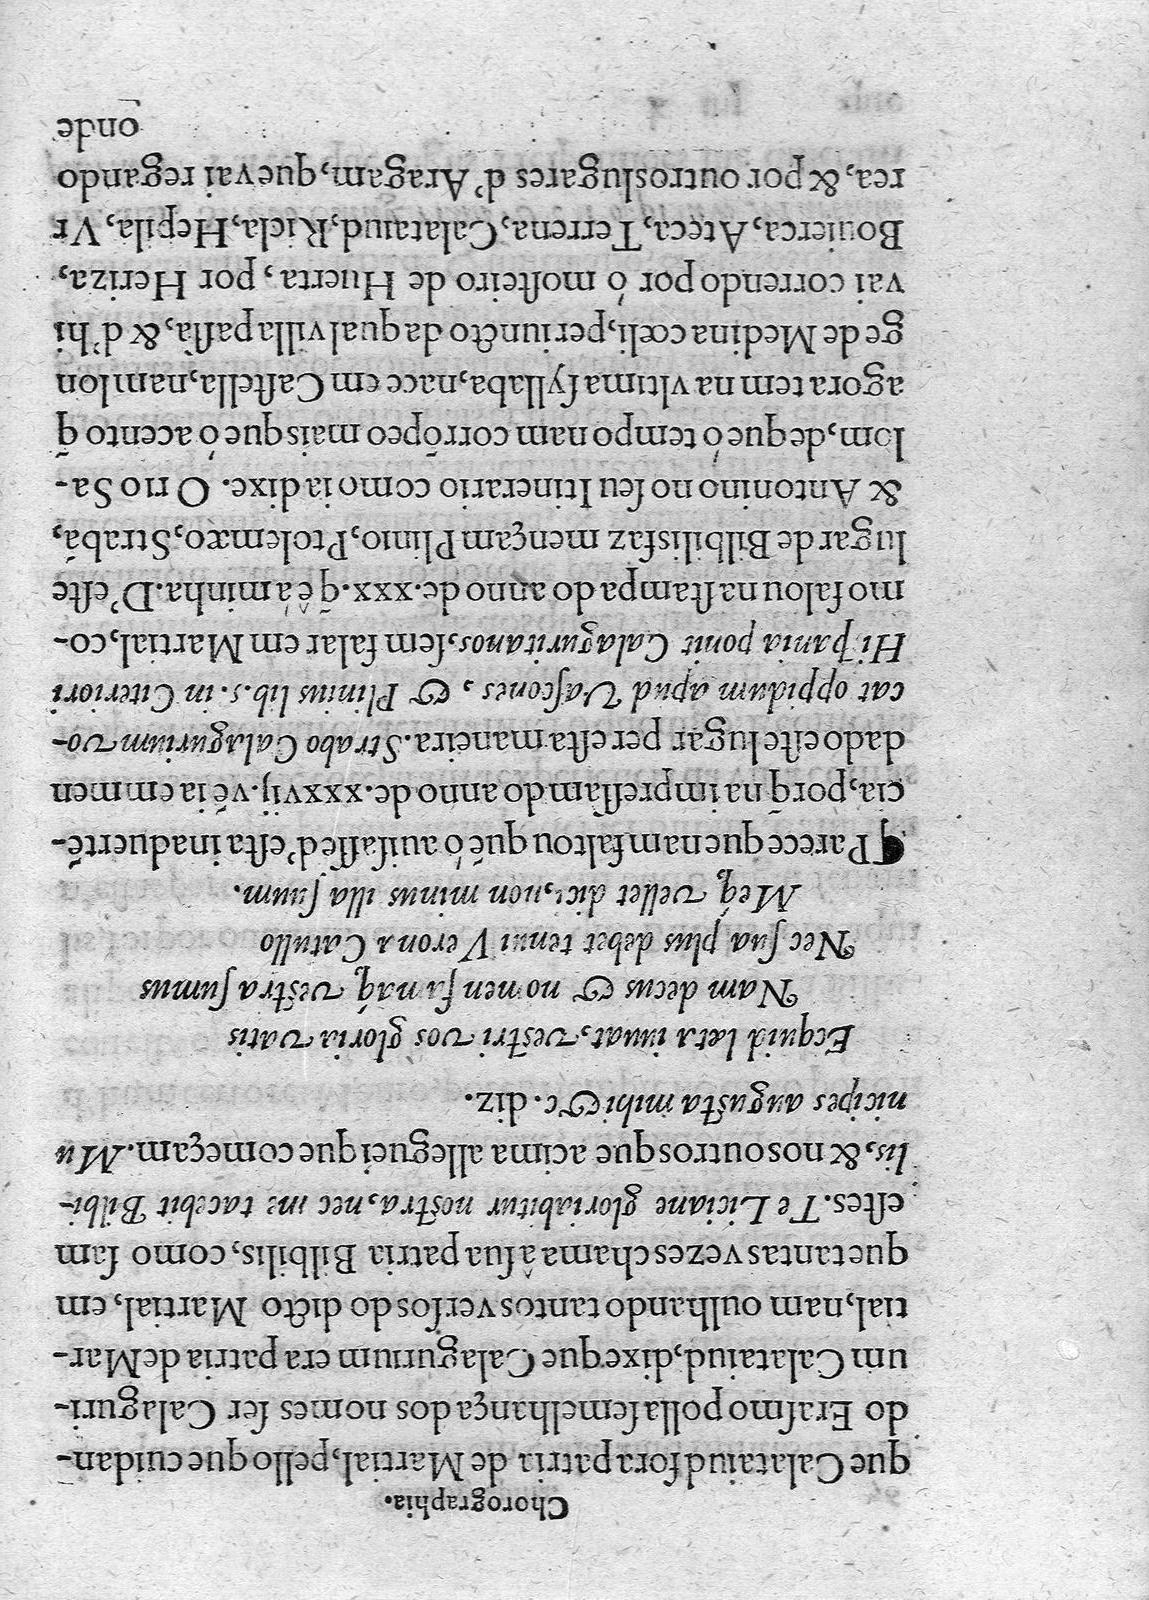 Chorographia.
que Calataiud fora patria de Martial, pello que cuidan-
do Erasmo polla semelhança dos nomes ser Calaguri-
um Calataiud, dixe que Calagurium era patria de Mar-
tial, nam oulhando tantos versos do dicto Martial, em
que tantas vezes chama â sua patria Bilbilis, como sam
estes. Te Liciane gloriabitur nostra, nec me tacebit Bilbi-
lis, & nos outros que acima alleguei que começam. Mu
nicipes augusta mihi &c. diz.
Ecquid læta iuuat, vestri vos gloria vatis
Nam decus & nomen famaq́; vestra sumus
Nec sua plus debet tenui Verona Catullo
Meq́; vellet dici, non minus illa suum.
¶ Parece que nam faltou quē o auisasse d'esta inaduertē-
cia, porq̃ na impressam do anno de .xxxvij. vē ia emmen
dado este lugar per esta maneira. Strabo Calagurium vo-
cat oppidum apud Vascones, & Plinius lib. s. in Citeriori
Hispania ponit Calaguritanos, sem falar em Martial, co-
mo falou na stampa do anno de .xxx. q̃ ê a minha. D'este
lugar de Bilbilis faz mençam Plinio, Ptolemæo, Strabã,
& Antonino no seu Itinerario como ia dixe. O rio Sa-
lom, de que ó tempo nam corrõpeo mais que ó acento q̃
agora tem na vltima syllaba, nace em Castella, nam lon
ge de Medina cœli, per iuncto da qual villa passa, & d'hi
vai correndo por ó mosteiro de Huerta, por Heriza,
Bouierca, Ateca, Terrena, Calataiud, Ricla, Hepila, Vr
rea, & por outros lugares d'Aragam, que vai regando
onde